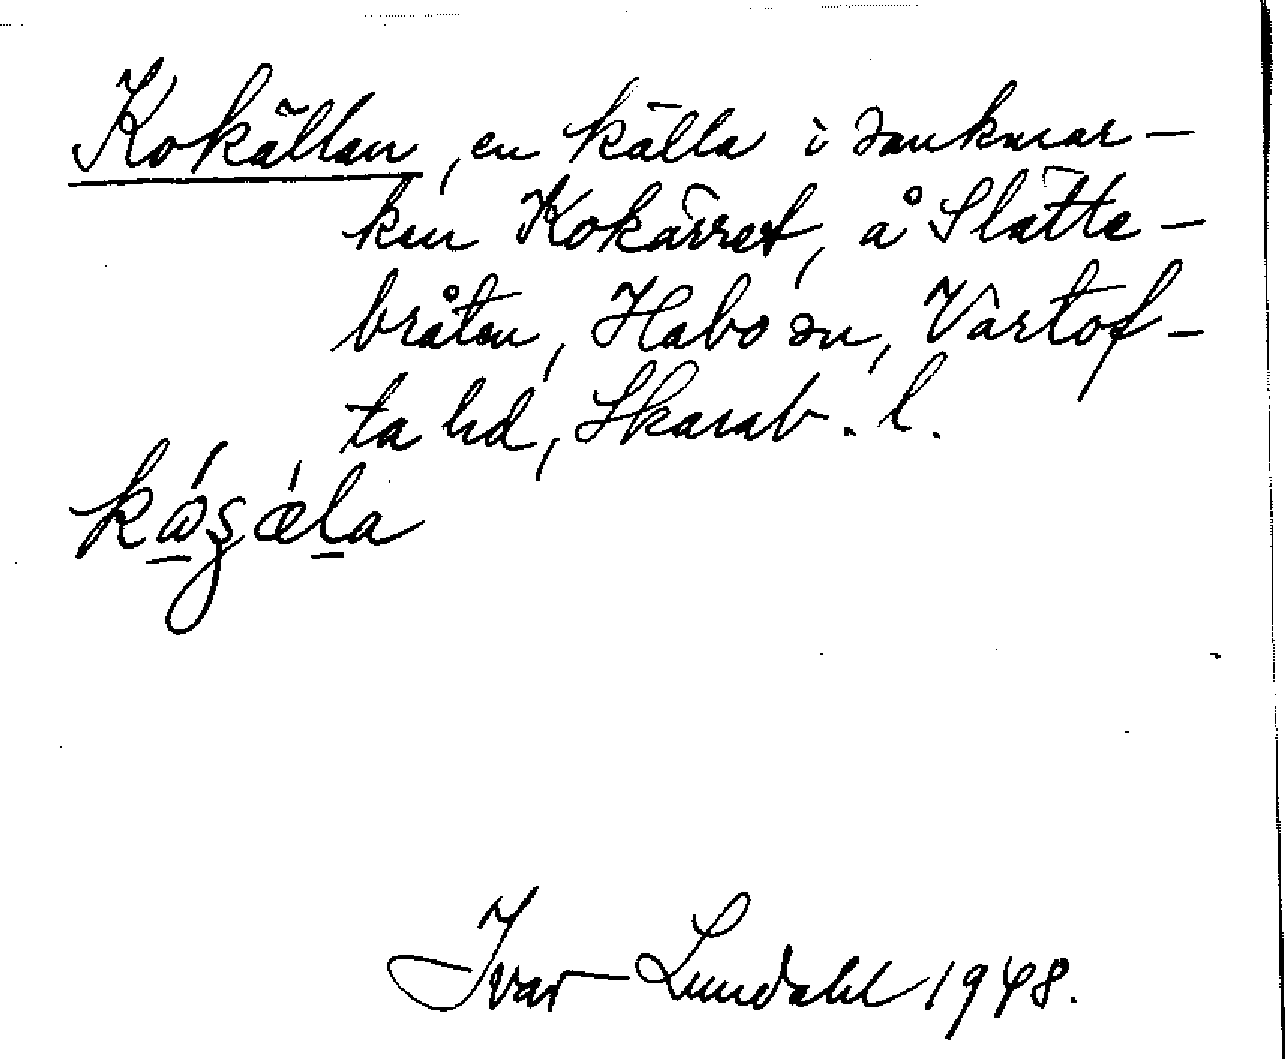 Kokällan, en källa i sankmar-
ken Kokärret, å Slätte-
bråten, Habo sn, Vartof-
ta hd, Skarab. l.
Ivar Lundahl 1948.